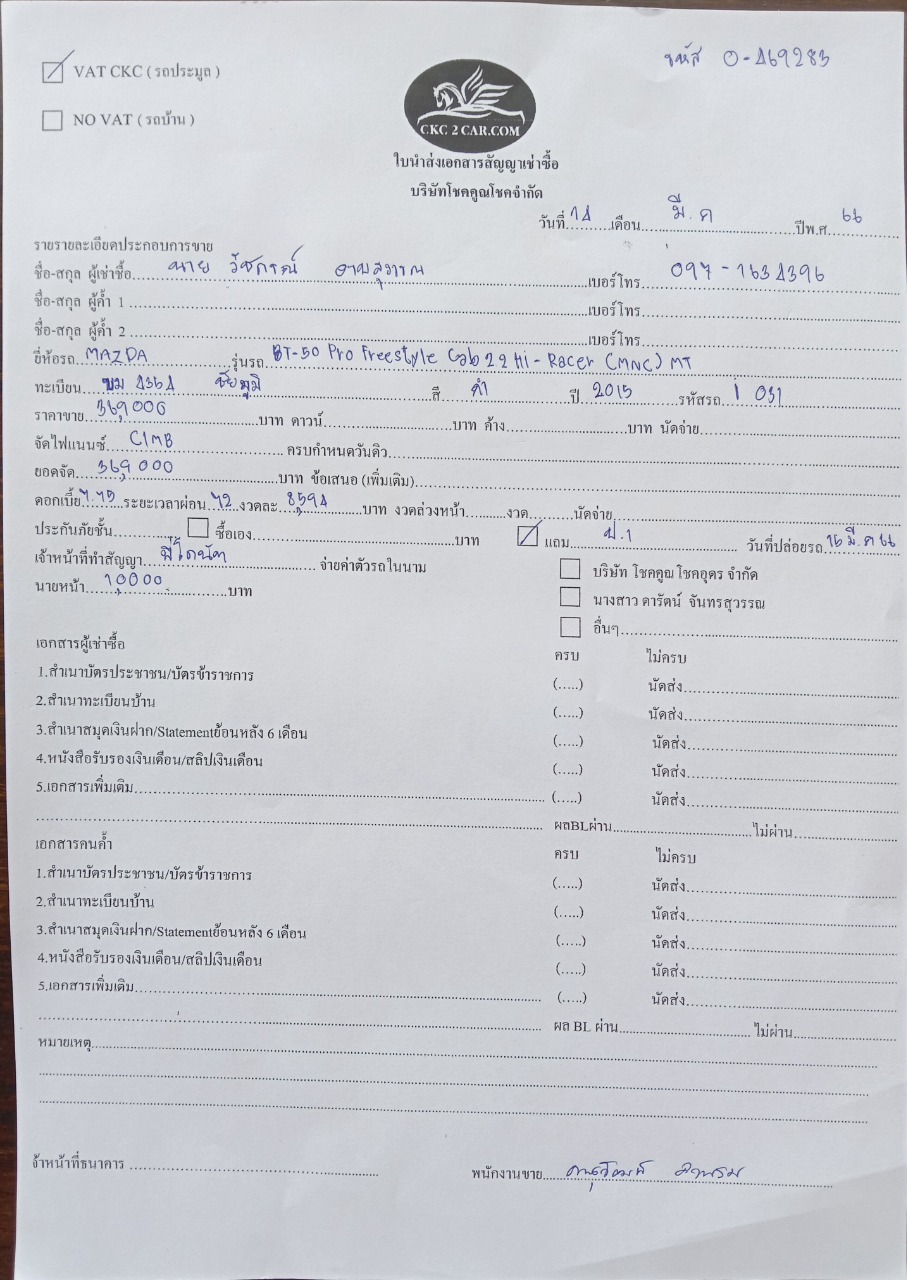 VAT CKC ( รถประมูล )
รหัส 0-469283
NO VAT ( รถบ้าน )
CKC 2 CAR.COM
ใบนำส่งเอกสารสัญญาเช่าซื้อ
บริษัทโชคคูณโชคจำกัด
วันที่ 14 เดือน มี.ค ปีพ.ศ. 66
รายรายละเอียดประกอบการขาย
ชื่อ-สกุล ผู้เช่าซื้อ นาย วัชกรณ์ เบอร์โทร 097-1634396
ชื่อ-สกุล ผู้ค้ำ 1 เบอร์โทร
ชื่อ-สกุล ผู้ค้ำ 2 เบอร์โทร
ยี่ห้อรถ MAZDA รุ่นรถ BT-50 Pro Freestyle Cab 2.2 Hi-Racer (MNC) MT
ทะเบียน บม 4354 ชัยภูมิ สี ดำ ปี 2015 รหัสรถ 1 031
ราคาขาย 369,000 บาท ดาวน์ บาท ค้าง บาท นัดจ่าย
จัดไฟแนนซ์ CIMB ครบกำหนดวันดิว
ยอดจัด 369,000 บาท ข้อเสนอ (เพิ่มเติม)
ดอกเบี้ย ระยะเวลาผ่อน 72 งวดละ 8,594 บาท งวดล่วงหน้า งวด นัดจ่าย
ประกันภัยชั้น ซื้อเอง บาท แถม ป.1 วันที่ปล่อยรถ 16 มี.ค 66
เจ้าหน้าที่ทำสัญญา จ่ายค่าตัวรถในนาม
บริษัท โชคคูณ โชคอุดร จำกัด
นายหน้า 10,000 บาท
นางสาว ดารัตน์ จันทรสุวรรณ
อื่นๆ
เอกสารผู้เช่าซื้อ ครบ ไม่ครบ
1.สำเนาบัตรประชาชน/บัตรข้าราชการ (.....) นัดส่ง
2.สำเนาทะเบียนบ้าน (.....) นัดส่ง
3.สำเนาสมุดเงินฝาก/Statementย้อนหลัง 6 เดือน (.....) นัดส่ง
4.หนังสือรับรองเงินเดือน/สลิปเงินเดือน (.....) นัดส่ง
5.เอกสารเพิ่มเติม (.....) นัดส่ง
ผลBLผ่าน ไม่ผ่าน
เอกสารคนค้ำ ครบ ไม่ครบ
1.สำเนาบัตรประชาชน/บัตรข้าราชการ (.....) นัดส่ง
2.สำเนาทะเบียนบ้าน (.....) นัดส่ง
3.สำเนาสมุดเงินฝาก/Statementย้อนหลัง 6 เดือน (.....) นัดส่ง
4.หนังสือรับรองเงินเดือน/สลิปเงินเดือน (.....) นัดส่ง
5.เอกสารเพิ่มเติม (.....) นัดส่ง
ผล BL ผ่าน ไม่ผ่าน
หมายเหตุ
จ้าหน้าที่ธนาคาร
พนักงานขาย